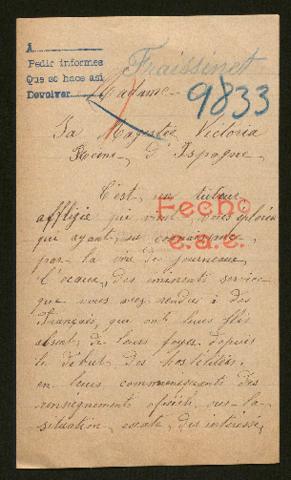 A
Pedir informes
Que se hace asi
Devolver
Fraissinet
9833
Madame
Sa Majestée Victoria
Reine d'Espagne,
C'est un tuteur
affligée qui vient
qui ayant eu connaissance
par la voie des journeaux
locaux, des iminents service
que vous avez rendue à des
Français, qui ont leurs fils
absent de leurs foyer depuis
le début des hostilités
en leurs communiquants des
renseignements oficiels sur la
situation exacte des intéressé,
Fecho
e.a.c.